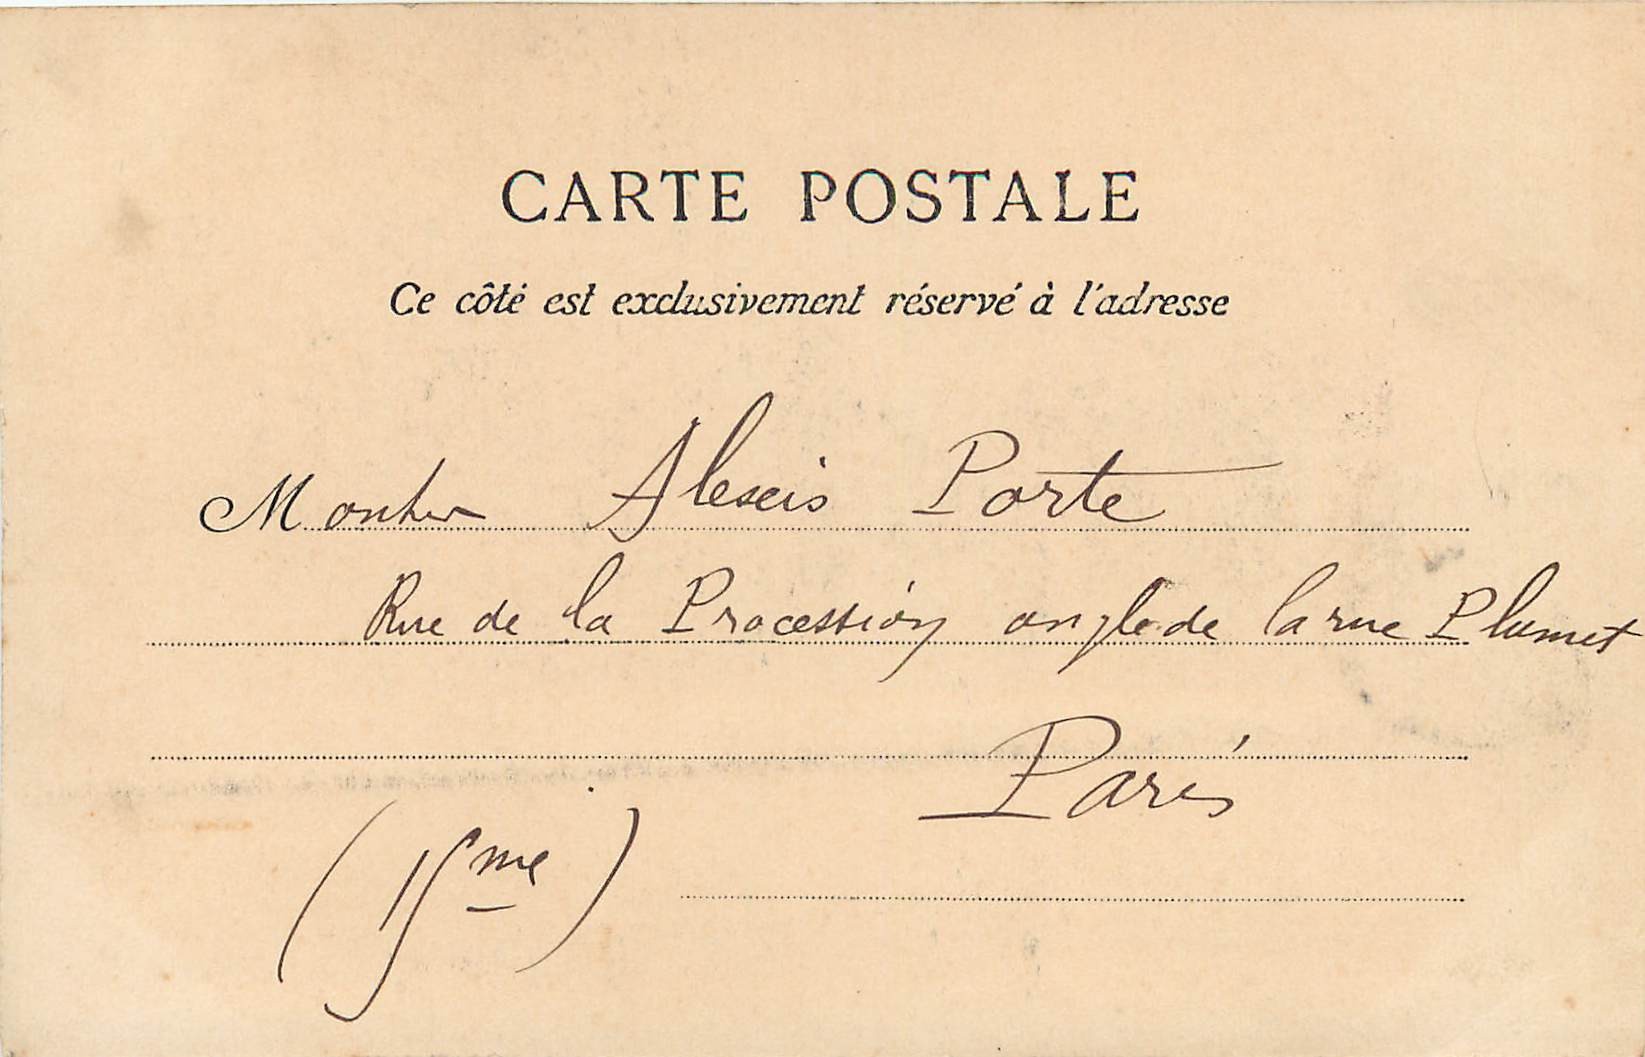 CARTE POSTALE
Ce côté est exclusivement réservé à l'adresse
Monsieur Alexis Porte
Rue de la Procession angle de la rue Plumet
Paris
(15me)